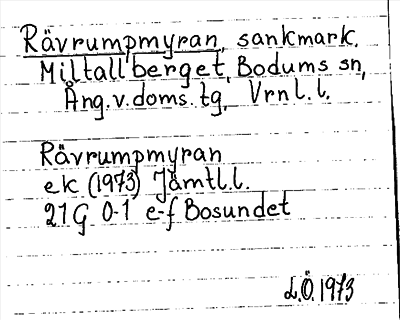 Rävrumpmyran, sankmark.
Miltallberget, Bodums sn,
Ång.v.doms.tg, Vrnl.l.
Rävrumpmyran
ek (1973) Jämtl.l.
21 G 0-1 e-f Bosundet
L.Ö. 1973